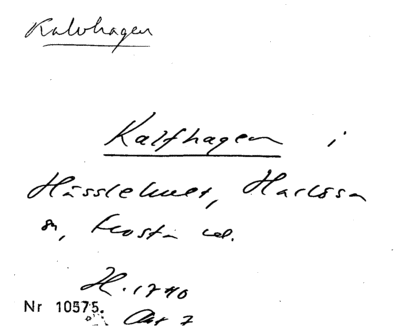 Kalvhagen
Kalfhagen i
Hässlehult, Harlösa
sn, Frosta hd.
H. 1740
Nr 10575. Akt 7